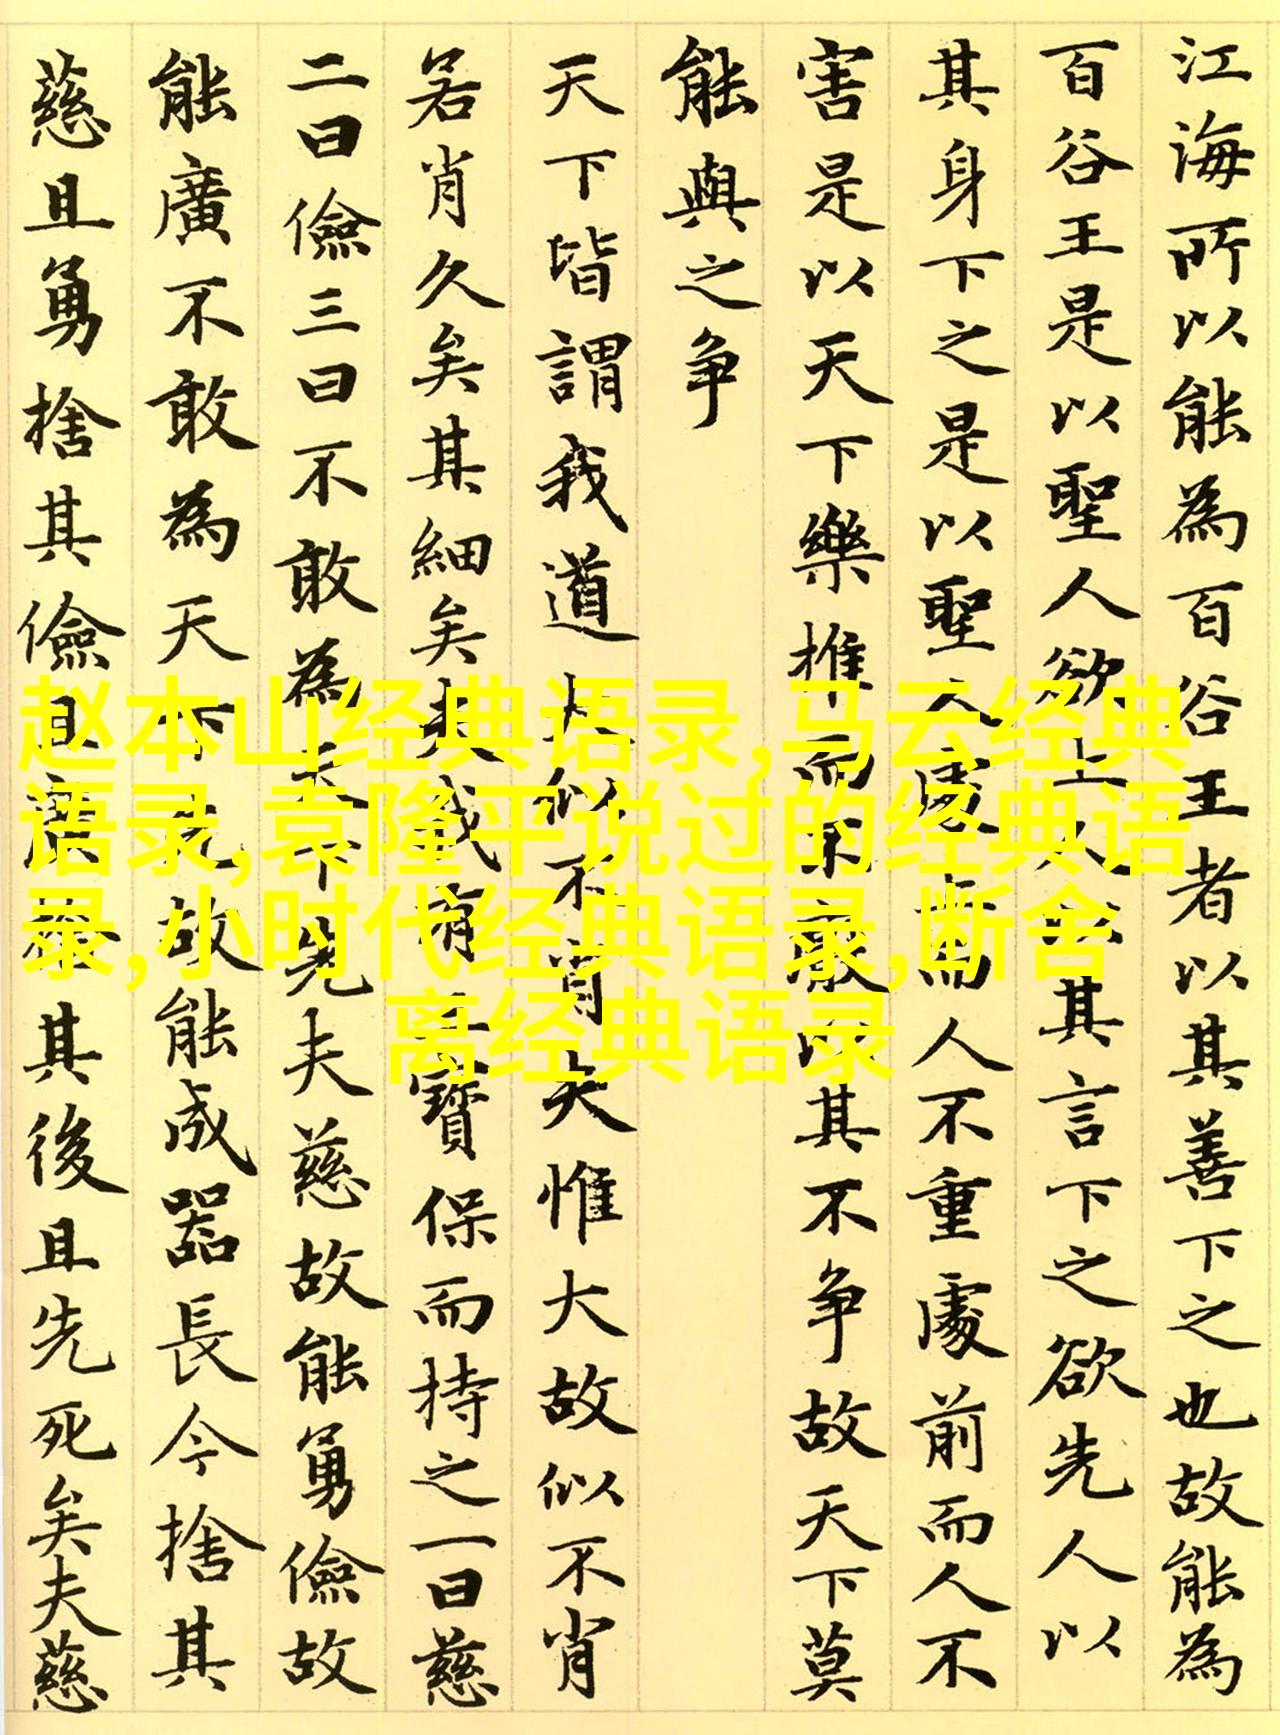 江海所以能為百谷王者以其善下之也故能為
百谷王是以聖人欲上人以其言下之欲先人以
其身下之是以聖人處上而人不重處前而人不
害是以天下樂推而不厭以其不争故天下莫
能與之争
天下皆謂我道大似不肖夫惟大故似不肖
若肖久矣其細矣夫我有三寶保而持之一曰慈
二曰儉三曰不敢為天下先夫慈故能勇儉故
能廣不敢為天下先故能成器長今捨其
慈且勇捨其儉且廣捨其後且先死矣夫慈
赵本山经典语录,马云经典
语录,袁隆平说过的经典语
录,小时代经典语录,断舍
离经典语录